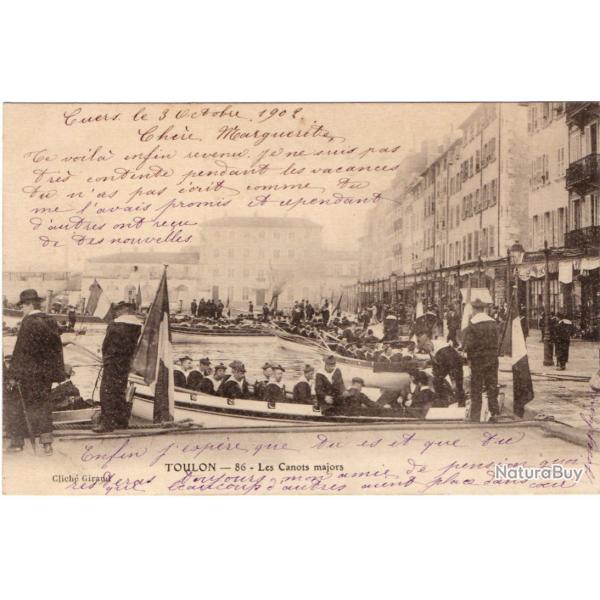 Cuers le 3 Octobre 1902
Chère Marguerite,
Te voilà enfin revenu. Je ne suis pas
très contente pendant les vacances
tu n'as pas écrit comme tu
me l'avais promis et cependant
d'autres ont reçu
de tes nouvelles
Enfin j'espère que tu es et que tu
TOULON — 86 - Les Canots majors
Cliché Giraud
resteras toujours mon amie de pension quoi
que beaucoup d'autres aient place dans
cœur
NaturaBuy